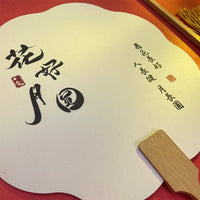 花好月圓
願花長好
人長健月長圓